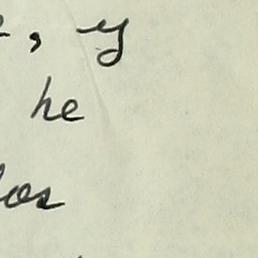 , y
he
los